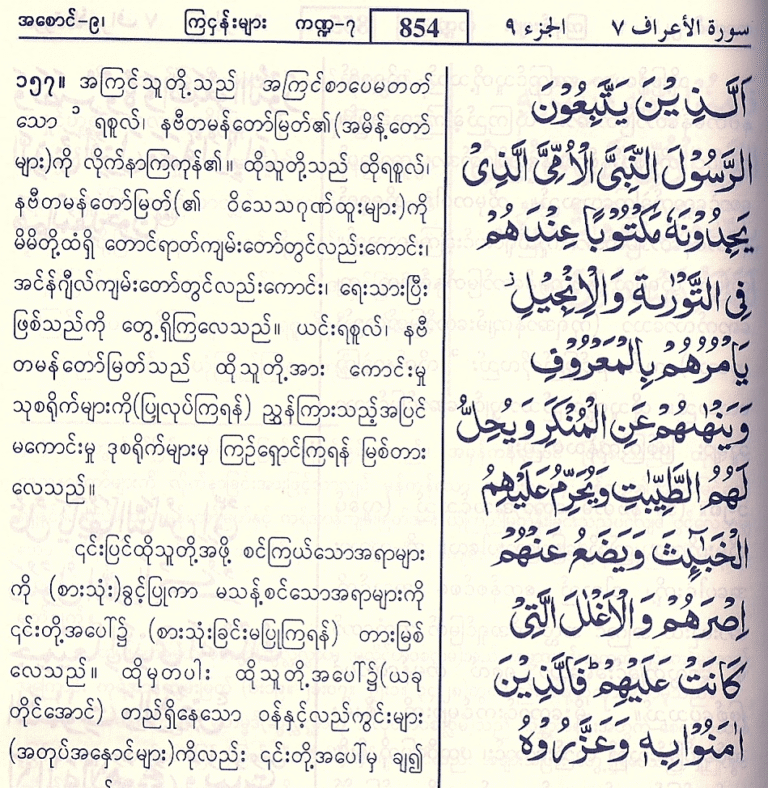 အစောင်-၉၊ ကြငှန်းများ ကဏ္ဍ-၇ 854 الجزء ٩ سورة الأعراف ٧
၁၅၇။ အကြင်သူတို့သည် အကြင်စာပေမတတ်
သော ရစူလ်၊ နဗီတမန်တော်မြတ်၏(အမိန့်တော်
များ)ကို လိုက်နာကြကုန်၏။ ထိုသူတို့သည် ထိုရစူလ်၊
နဗီတမန်တော်မြတ်(၏ ဝိသေသဂုဏ်ထူးများ)ကို
မိမိတို့ထံရှိ တောင်ရာတ်ကျမ်းတော်တွင်လည်းကောင်း၊
အင်န်ဂျီလ်ကျမ်းတော်တွင်လည်းကောင်း၊ ရေးသားပြီး
ဖြစ်သည်ကို တွေ့ရှိကြလေသည်။ ယင်းရစူလ်၊ နဗီ
တမန်တော်မြတ်သည် ထိုသူတို့အား ကောင်းမှု
သုစရိုက်များကို(ပြုလုပ်ကြရန်) ညွှန်ကြားသည့်အပြင်
မကောင်းမှု ဒုစရိုက်များမှ ကြဉ်ရှောင်ကြရန် မြစ်တား
လေသည်။
၎င်းပြင်ထိုသူတို့အဖို့ စင်ကြယ်သောအရာများ
ကို (စားသုံး)ခွင့်ပြုကာ မသန့်စင်သောအရာများကို
၎င်းတို့အပေါ်၌ (စားသုံးခြင်းမပြုကြရန်) တားမြစ်
လေသည်။ ထိုမှတပါး ထိုသူတို့အပေါ်၌(ယခု
တိုင်အောင်) တည်ရှိနေသော ဝန်နှင့်လည်ကွင်းများ
(အတုပ်အနှောင်များ)ကိုလည်း ၎င်းတို့အပေါ်မှ ချ၍
اَلَّذِيْنَ يَتَّبِعُوْنَ
الرَّسُوْلَ النَّبِىَّ الْاُمِّىَّ الَّذِىْ
يَجِدُوْنَهٗ مَكْتُوْبًا عِنْدَهُمْ
فِى التَّوْرٰىةِ وَالْاِنْجِيْلِ ۫
يَاْمُرُهُمْ بِالْمَعْرُوْفِ
وَيَنْهٰىهُمْ عَنِ الْمُنْكَرِ وَيُحِلُّ
لَهُمُ الطَّيِّبٰتِ وَيُحَرِّمُ عَلَيْهِمُ
الْخَبٰٓئِثَ وَيَضَعُ عَنْهُمْ
اِصْرَهُمْ وَالْاَغْلٰلَ الَّتِىْ
كَانَتْ عَلَيْهِمْ ؕ فَالَّذِيْنَ
اٰمَنُوْا بِهٖ وَعَزَّرُوْهُ